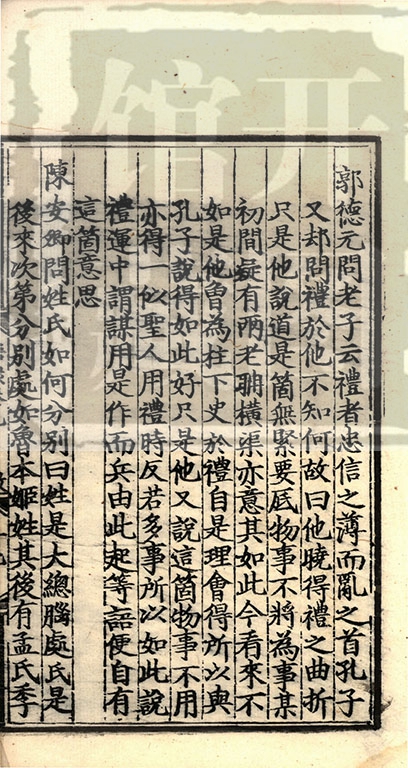 郭德元問老子云禮者忠信之薄而亂之首孔子
又却問禮於他不知何故曰他曉得禮之曲折
只是他說道是箇無緊要底物事不將為事某
初間疑有兩老聃橫渠亦意其如此今看來不
如是他曾為柱下史於禮自是理會得所以與
孔子說得如此好只是他又說這箇物事不用
亦得一似聖人用禮時反若多事所以如此說
禮運中謂謀用是作而兵由此起等語便自有
這箇意思
陳安卿問姓氏如何分別曰姓是大總腦處氏是
後來次第分別處如魯本姬姓其後有孟氏季